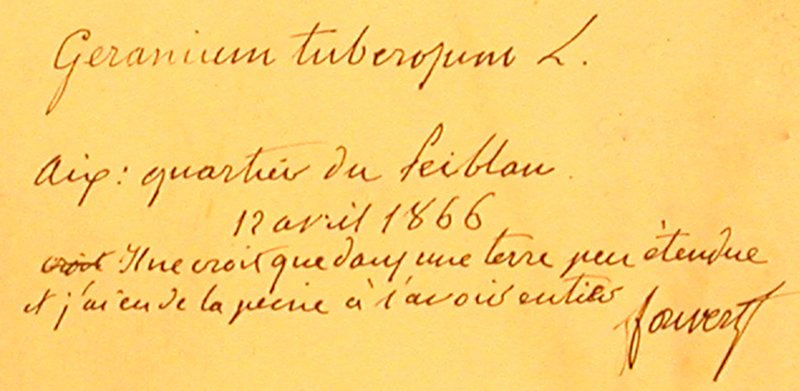 Geranium tuberosum L.
Aix: quartier du Seiblau
12 avril 1866
croit Il ne croit que dans une terre peu étendue
et j'ai eu de la peine à l'avoir entier
Jouvert